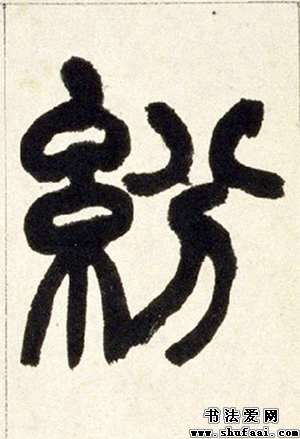 紛
书法爱网
www.shufaai.com